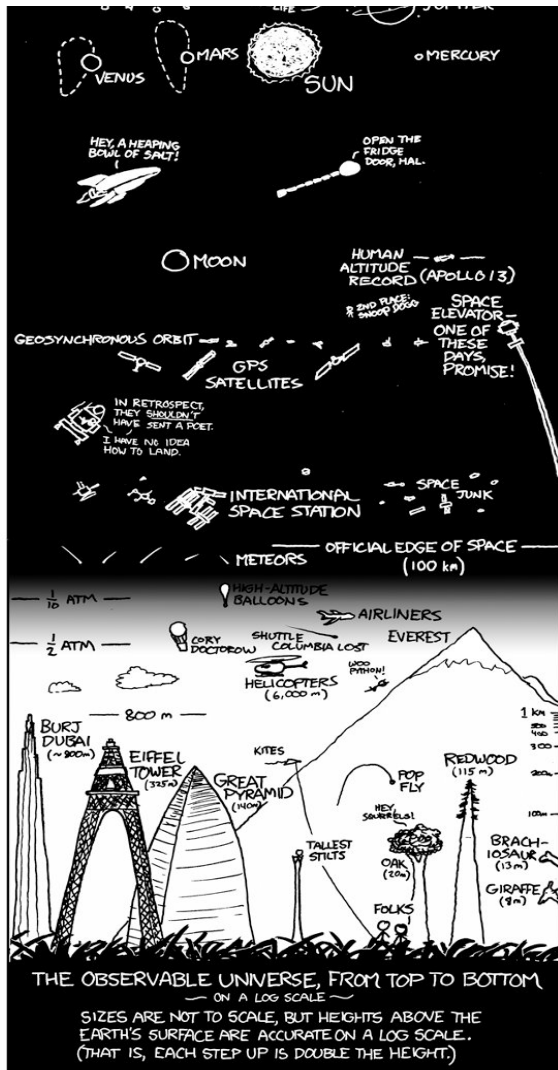 LIFE
JUPITER
MARS
VENUS
SUN
MERCURY
HEY, A HEAPING
BOWL OF SALT!
OPEN THE
FRIDGE
DOOR, HAL.
MOON
HUMAN
ALTITUDE
RECORD (APOLLO 13)
2ND PLACE:
SNOOP DOGG
SPACE
ELEVATOR—
ONE OF
THESE
DAYS,
PROMISE!
GEOSYNCHRONOUS ORBIT
GPS
SATELLITES
IN RETROSPECT,
THEY SHOULDN'T
HAVE SENT A POET.
I HAVE NO IDEA
HOW TO LAND.
INTERNATIONAL
SPACE STATION
SPACE
JUNK
METEORS
OFFICIAL EDGE OF SPACE
(100 km)
1/10 ATM
HIGH-ALTITUDE
BALLOONS
AIRLINERS
1/2 ATM
CORY
DOCTOROW
SHUTTLE
COLUMBIA LOST
EVEREST
HELICOPTERS
(6,000 m)
WOO
PYTHON!
800 m
1 km
500
400
300
200m
100m
BURJ
DUBAI
(~800m)
EIFFEL
TOWER
(325m)
GREAT
PYRAMID
(140m)
KITES
POP
FLY
REDWOOD
(115 m)
HEY,
SQUIRRELS!
TALLEST
STILTS
OAK
(20m)
BRACH-
IOSAUR
(13m)
GIRAFFE
(8m)
FOLKS
THE OBSERVABLE UNIVERSE, FROM TOP TO BOTTOM
~ ON A LOG SCALE ~
SIZES ARE NOT TO SCALE, BUT HEIGHTS ABOVE THE
EARTH'S SURFACE ARE ACCURATE ON A LOG SCALE.
(THAT IS, EACH STEP UP IS DOUBLE THE HEIGHT.)